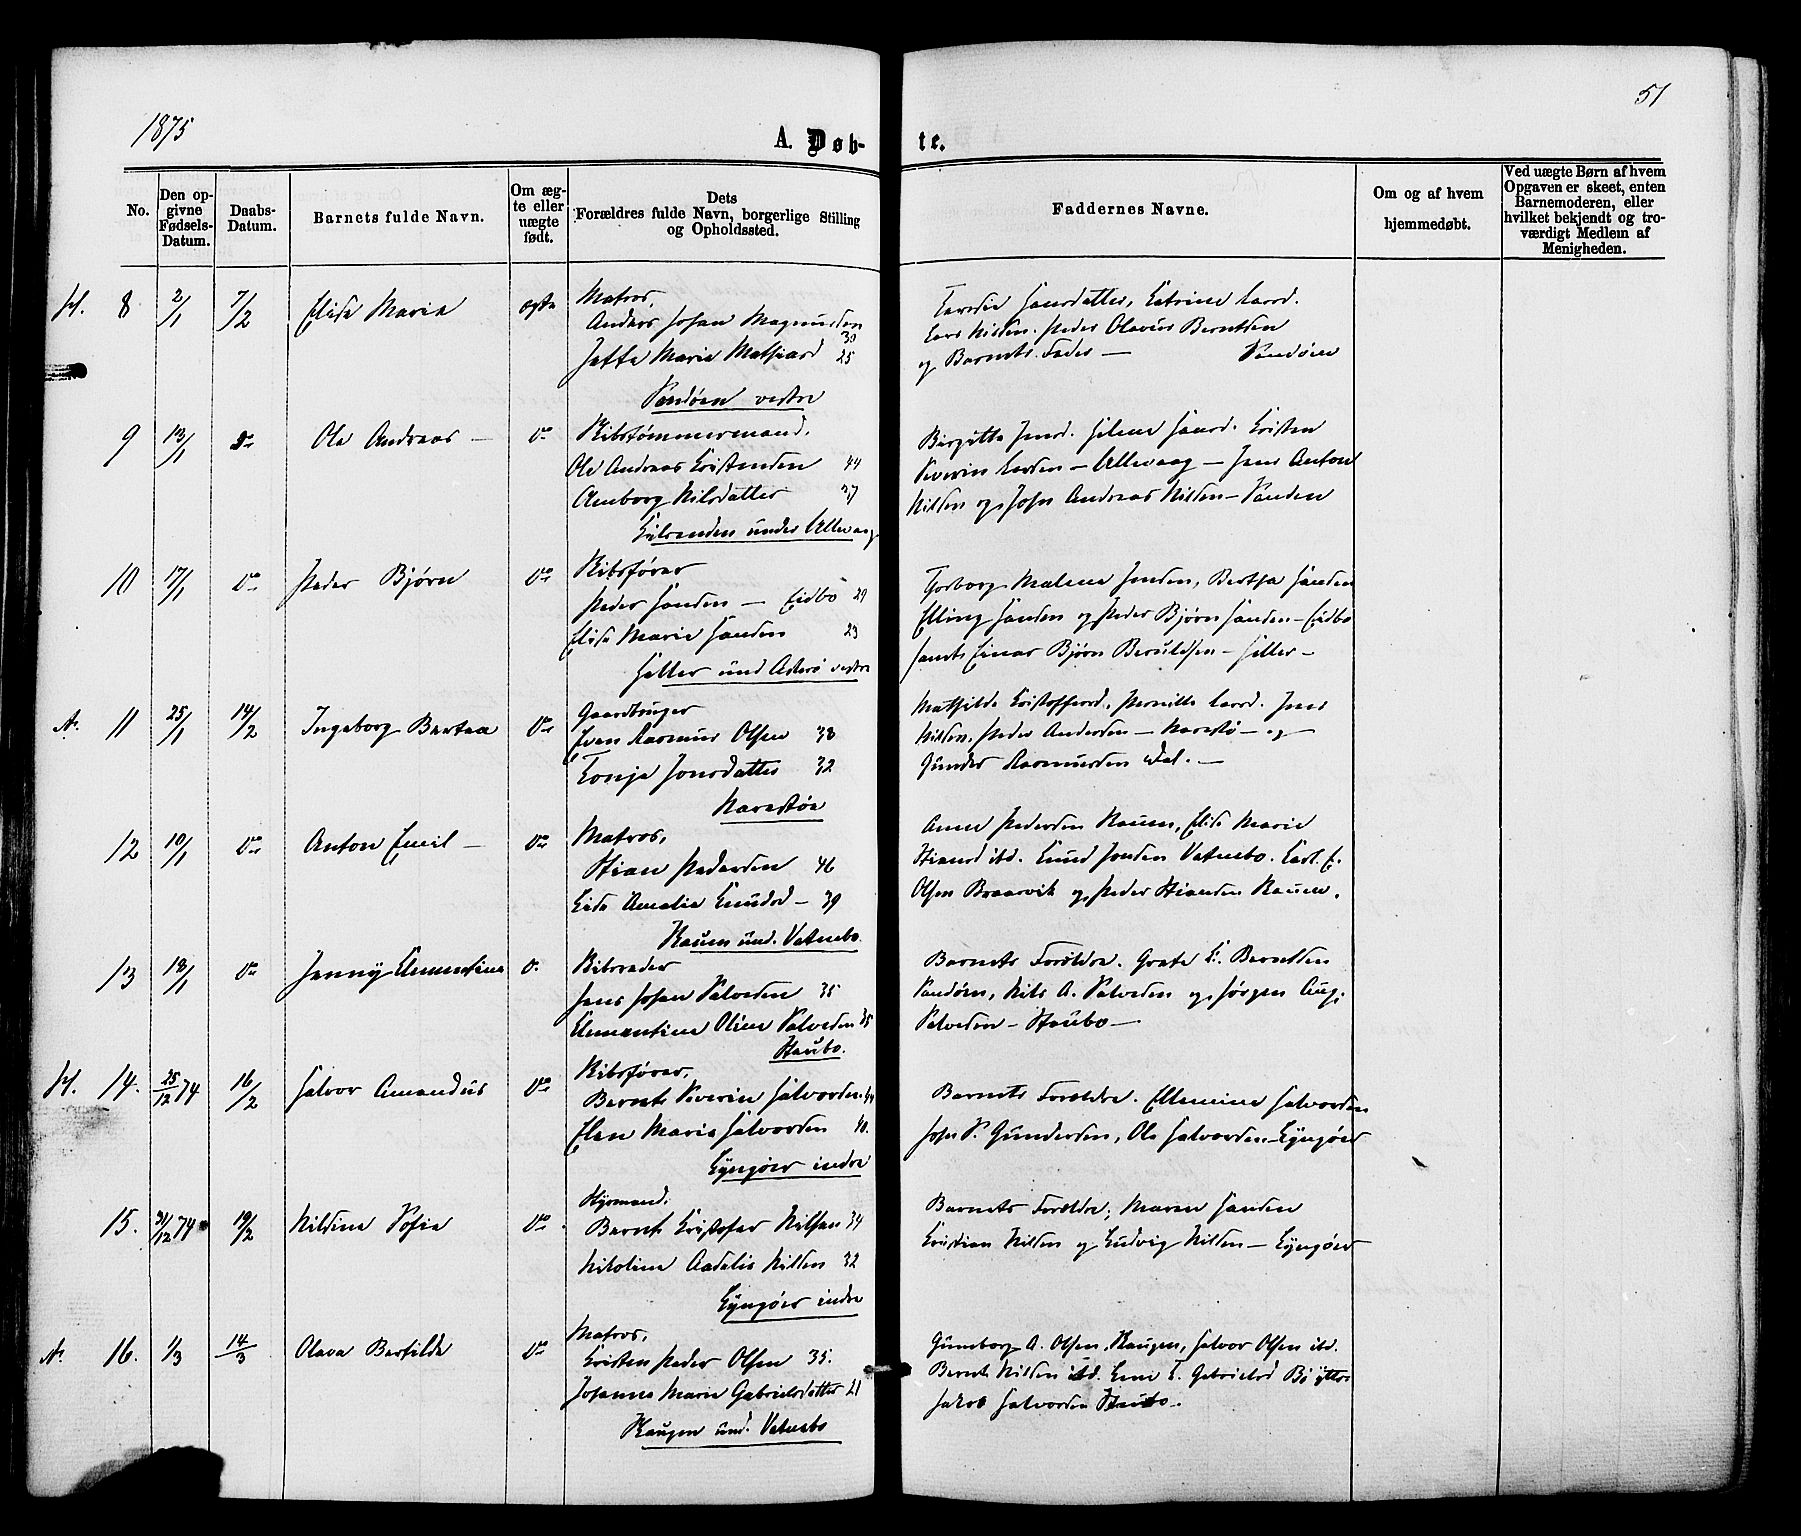 1875
51
A. Døb-
te.
No.
Den op-
givne
Fødsels-
Datum.
Daabs-
Datum.
Barnets fulde Navn.
Om æg-
te eller
uægte
født.
Dets
Forældres fulde Navn, borgerlige Stilling
og Opholdssted.
Faddernes Navne.
Om og af hvem
hjemmedøbt.
Ved uægte Børn af hvem
Opgaven er skeet, enten
Barnemoderen, eller
hvilket bekjendt og tro-
værdigt Medlem af
Menigheden.
8 2/1 7/2 Elise Maria ægte Matros,
Anders Johan Magnussen 30
Marie 25
Sandøen vestre
Hansdatter, Katrine Larsd.
Lars Nilsen, Peder Olavus Berntsen
og Barnets Fader — Sandøen
9 13/1 do Ole Andreas — do Skibstømmermand,
Ole Andreas Kristensen 44
Nilsdatter 37
under Ullevaag
Birgitte Jensd. Helene Hansd. Kristen
Severin Larsen — Ullevaag — Jens Anton
Nilsen og John Andreas Nilsen — Sanden
10 17/1 do Peder Bjørn do Skibsfører
Peder Hansen — Eidbo 29
Elise Marie Hansen 23
und Askerø vestre
Malene Jensen, Hansen
Elling Hansen og Peder Bjørn Hansen — Eidbo
samt Einar Bjørn
A. 11 25/1 14/2 Ingeborg do Gaardbruger
Even Rasmus Olsen 38
Jonsdatter 32
Narestøe
Mathilde Kristoffersd. Pernille Larsd. Jens
Nilsen, Peder Andersen — Narestø — og
Gunder Rasmussen Dal. —
12 10/1 do Anton Emil — do Matros,
Stian Pedersen 46
Amalie Knudsd — 39
und. Vatnebo.
Anne Pedersen Elise Marie
Stiansd ibd. Knud Jensen Vatnebo. Karl E.
Olsen Braarvik og Peder Stiansen
13 18/1 do Jenny Klementine do. Skibsreder
Jens Johan Salvesen 35
Klementine Oline Salvesen 35
Staubo.
Barnets Forældre. Grete K. Berntsen
Sandøen, Nils A. Salvesen og Jørgen Aug.
Salvesen — Staubo —
14. 25/12 74 16/2 Halvor Amandus do Skibsfører,
Bernt Severin Halvorsen 44
Elen Maria Halvorsen 40.
Lyngøer indre
Barnets Forældre. Ellemine Halvorsen
John S. Gundersen, Ole Halvorsen — Lyngøer
15. 31/12 74 19/2 Nilsine Sofie do Styrmand.
Bernt Kristofer Nilsen 34
Nikoline Aadelis Nilsen 32
Lyngøer indre
Barnets Forældre, Maren Hansen
Kristian Nilsen og Ludvig Nilsen — Lyngøer
A. 16. 1/3 14/3 Olava Bertilde do Matros,
Kristen Peder Olsen 35.
Johanne Marie Gabrielsdatter 21
Haugen und. Vatnebo
Gunborg A. Olsen, Haugen, Halvor Olsen ibd.
Bernt Nilsen ibd. Gabrielsd
Jakob Halvorsen Staubo.